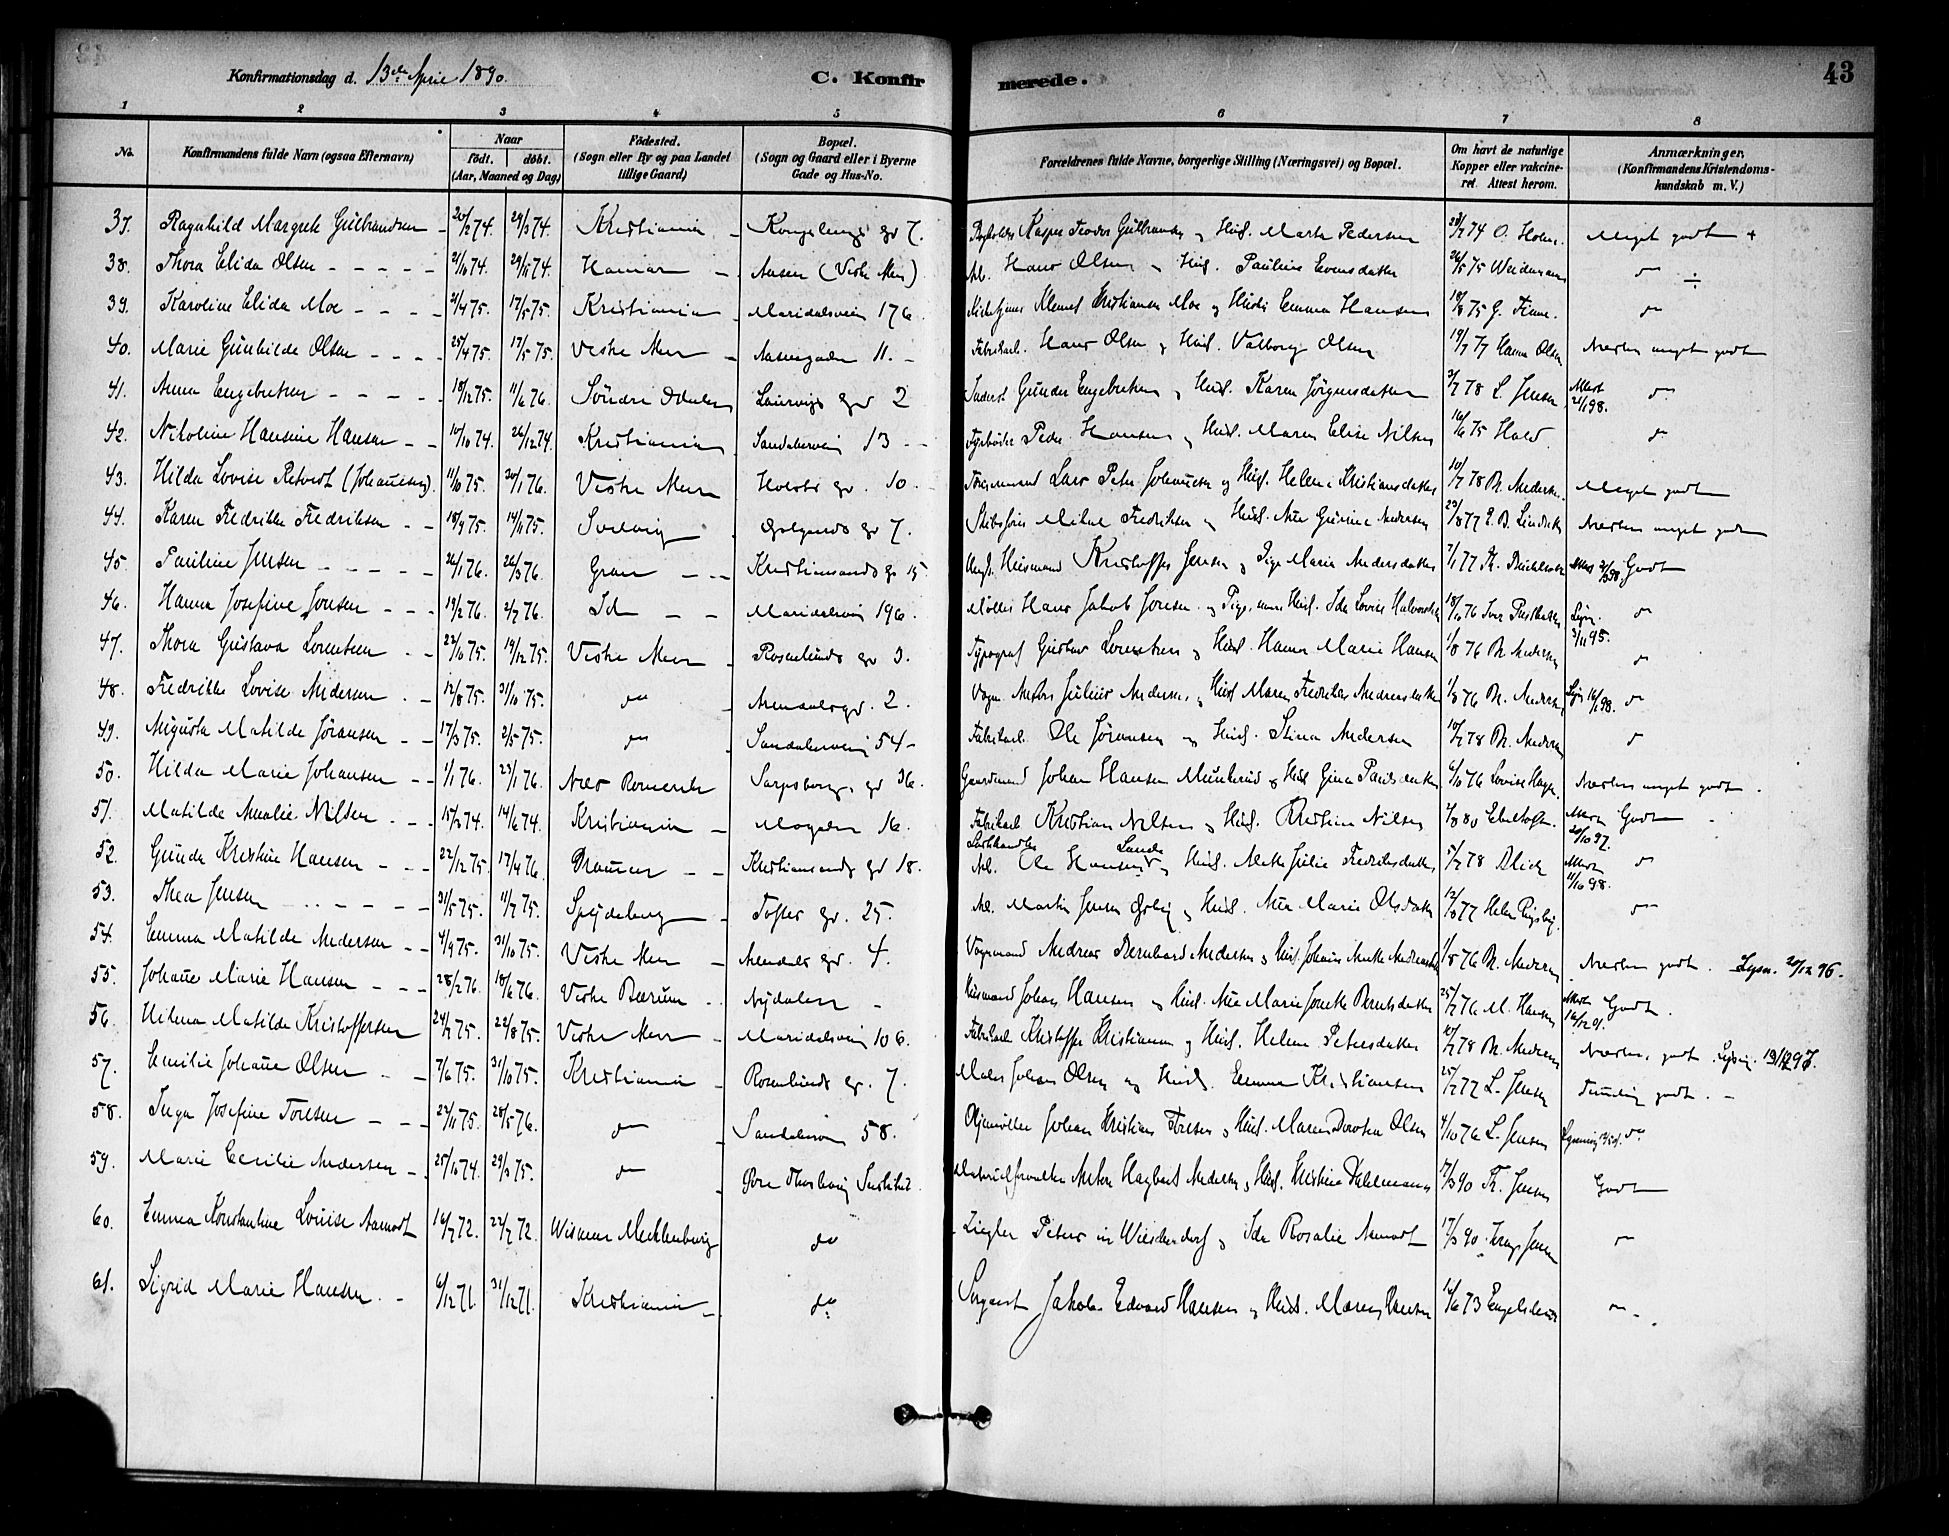 Konfirmationsdag d. 13de April 1890.
C. Konfirmerede.
43
1 2 3 4 5 6 7 8
No. Konfirmandens fulde Navn (ogsaa Efternavn) Naar födt. döbt. (Aar, Maaned og Dag) Födested. (Sogn eller By og paa Landet tillige Gaard) Bopæl. (Sogn og Gaard eller i Byerne Gade og Hus-No. Forældrenes fulde Navne, borgerlige Stilling (Næringsvei) og Bopæl. Om havt de naturlige Kopper eller vakcineret. Attest herom. Anmærkninger, (Konfirmandens Kristendomskundskab m. V.)
37. Ragnhild Margrete Gulbrandsen 20/2 74. 29/3 74. Kristiania Kongsbergs gd 7. Kasper Teodor Gulbrandsen og Hust. Marte Pedersen 28/7 74 O. Holm. Meget godt +
38. Thora Elida Olsen 21/10 74. 29/11 74. Hamar Aasen (Vestre Aker) Arb. Hans Olsen og Hust. Pauline Evensdatter 26/5 75 Weidemann do ÷
39. Karoline Elida Moe 21/4 75. 17/5 75. Kristiania Maridalsveien 176. Klemet Kristiansen Moe og Hust. Emma Hansen 18/8 75 G. Finne. do
40. Marie Gunhilde Olsen 25/4 75. 17/5 75. Vestre Aker Aasengaden 11. Fabrikarb. Hans Olsen og Hust. Valborg Olsen 19/7 77 Hanna Olsen Næsten meget godt
41. Anna Engebretsen 18/12 75. 11/6 76. Söndre Odalen Laurvigs gd 2 Gunder Engebretsen og Hust. Karen Jörgensdatter 2/7 78 L. Jensen Attest 21/1 98. do
42. Nikoline Hansine Hansen 10/10 74. 26/12 74. Kristiania Sandakerveien 13 Fyrböder Peder Hansen og Hust. Maren Elise Nilsen 16/6 75 Hald. do
43. Hilda Lovise Retvedt (Johansen) 11/10 75. 30/1 76. Vestre Aker Holsts gd. 10. Formand Lars Peter Johansen og Hust. Helene Kristiansdatter 10/7 78 Th. Andersen Meget godt
44. Karen Fredrikke Fredriksen 18/9 75. 14/11 75. Svelvig gd 7. Fredriksen og Hust. Ane Gurine Andersen 29/8 77 Næsten meget godt
45. Pauline Jensen 26/1 76. 26/3 76. Gran Kristiansands gd 15. Ungk. Husmand Kristoffer Jensen og Pige Marie Andersdatter 7/1 77 Godt
46. Hanna Josefine Jonsen 19/2 76. 2/7 76. Id Maridalsveien 196. Möller Hans Jakob Jonsen og Pige, nu Hust. Ida Lovise Halvorsdatter 18/10 76 Lysn. 3/11 95. do
47. Thora Gustava Lorentsen 22/10 75. 19/12 75. Vestre Aker Rosenlunds gd 3. Typograf Gustav Lorentsen og Hust. Hanna Marie Hansen 1/8 76 Th. Andersen do
48. Fredrikke Lovise Andersen 12/8 75. 31/10 75. do Arendalsgd. 2. Vogn. Anders Julius Andersen og Hust. Maren Fredrikke Andreasdatter 1/8 76 Th. Andersen Lys. 16/1 98. do
49. Augusta Matilde Jöransen 17/3 75. 2/5 75. do Sandakerveien 54 Fabrikarb. Ole Jöransen og Hust. Stina Andersen 10/7 78 Th. Andersen do
50. Hilda Marie Johansen 1/1 76. 23/1 76. Næs Romerike Sarpsborgs gd 36. Gaardmand Johan Hansen Munkerud og Hust. Gina Paulsdatter 6/10 76 Lovise Hagen Næsten meget godt.
51. Matilde Amalie Nilsen 15/2 74. 14/6 74. Kristiania Mogaten 16. Fabrikarb. Kristian Nilsen og Hust. Kristine Nilsen 4/8 80 Ebeltoft. Attest 20/10 97. Godt
52. Gunda Kristine Hansen 22/12 75. 17/4 76. Kristiansands gd 18. Arb. Ole Hansen Lunde og Hust. Mette Julie Fredriksdatter 5/7 78 Blich Attest 11/10 98. do
53. Thea Jensen 31/5 75. 11/7 75. Spydeberg Tofter gd. 25. Arb. Martin Jensen Örby og Hust. Ane Marie Olsdatter 12/10 77 do
54. Emma Matilde Andersen 4/9 75. 31/10 75. Vestre Aker gd. 4. Vognmand Andreas Bernhard Andersen og Hust. Johanne Mette Andreasdatter 1/8 76 Th. Andersen Næsten godt. Lysn. 20/12 96.
55. Johanne Marie Hansen 28/2 76. 18/6 76. Vestre Bærum Nydalen Husmand Johan Hansen og Hust. Ane Marie Jonette Berntsdatter 25/7 76 M. Hansen Attest 16/12 01. Godt.
56. Hilma Matilde Kristoffersen 24/7 75. 22/8 75. Vestre Aker Maridalsveien 106. Fabrikarb. Kristoffer Kristiansen og Hust. Helene Petersdatter 10/7 78 Th. Andersen Næsten godt. Lysn. 13/12 97.
57. Emilie Johanne Olsen 7/6 75. 31/10 75. Kristiania Rosenlunds gd. 7. Maler Johan Olsen og Hust. Emma Kristiansen 25/7 77 L. Jensen Temmelig godt.
58. Inga Josefine Toresen 22/11 75. 28/5 76. do Sandakerveien 58. Johan Kristian Toresen og Hust. Maren Dorotea Olsen 4/10 76 L. Jensen do
59. Marie Cecilie Andersen 25/10 74. 29/3 75. do Materialforvalter Anton Hagbart Andersen og Hust. Kristine Dahlmann 17/3 90 Th. Jensen Godt
60. Emma Konstantine Louise Aamodt 16/7 72. 22/7 72. Wismar Mecklenburg do Ziegler Peters in Wieschendorf og Ida Rosalie Aamodt 17/3 90 Jensen do
61. Sigrid Marie Hansen 6/12 71. 31/12 71. Kristiania do Sergeant Jakob Edvard Hansen og Hust. Maren Hansen 16/6 73 do